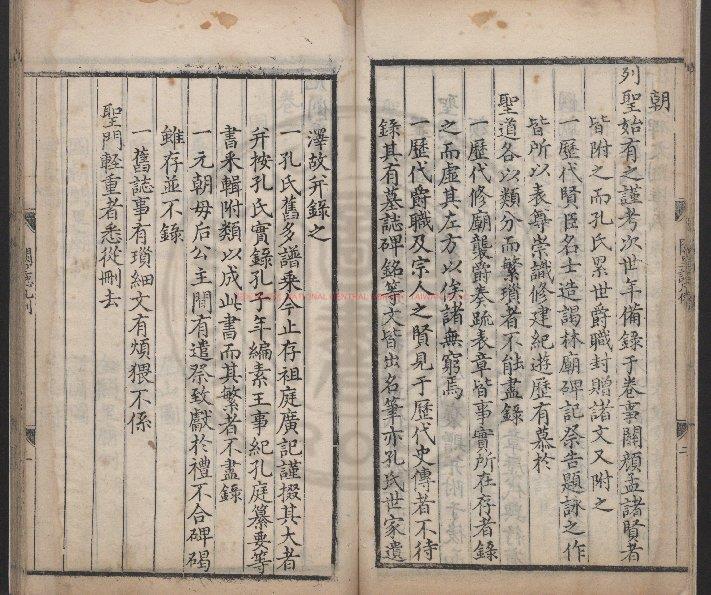 朝
列聖始有之謹考次世年備錄于卷事關顏孟諸賢者
皆附之而孔氏累世爵職封贈諸文又附之
一歷代賢臣名士造謁林廟碑記祭告題詠之作
皆所以表尊崇識修建紀遊歷有慕於
聖道各以類分而繁瑣者不能盡錄
一歷代修廟襲爵奏疏表章皆事實所在存者錄
之而虛其左方以俟諸無窮焉
一歷代爵職及宗人之賢見于歷代史傳者不待
錄其有墓誌碑銘等文皆出名筆亦孔氏世家遺
澤故并錄之
一孔氏舊多譜乘今止存祖庭廣記謹掇其大者
并按孔氏實錄孔子年編素王事紀孔庭纂要等
書釆輯附類以成此書而其繁者不盡錄
一元朝毋后公主間有遣祭致獻於禮不合碑碣
雖存並不錄
一舊誌事有瑣細文有煩猥不係
聖門輕重者悉從刪去
闕里誌凡例
一
NATIONAL CENTRAL LIBRARY, TAIWAN